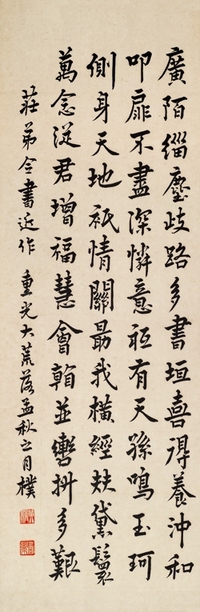 廣陌緇塵歧路多書垣喜得養沖和
叩扉不盡深憐意秖有天孫鳴玉珂
側身天地秖情關最我橫經鬢
萬念從君增福慧會翰並轡拚多艱
莊弟令書近作重光大荒落孟秋之月樸